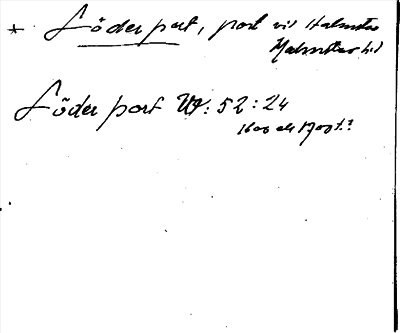 * Söder port, port vid Halmstad
Halmstad hd
Söder port W: 52: 24
1600 el 1700 t.?